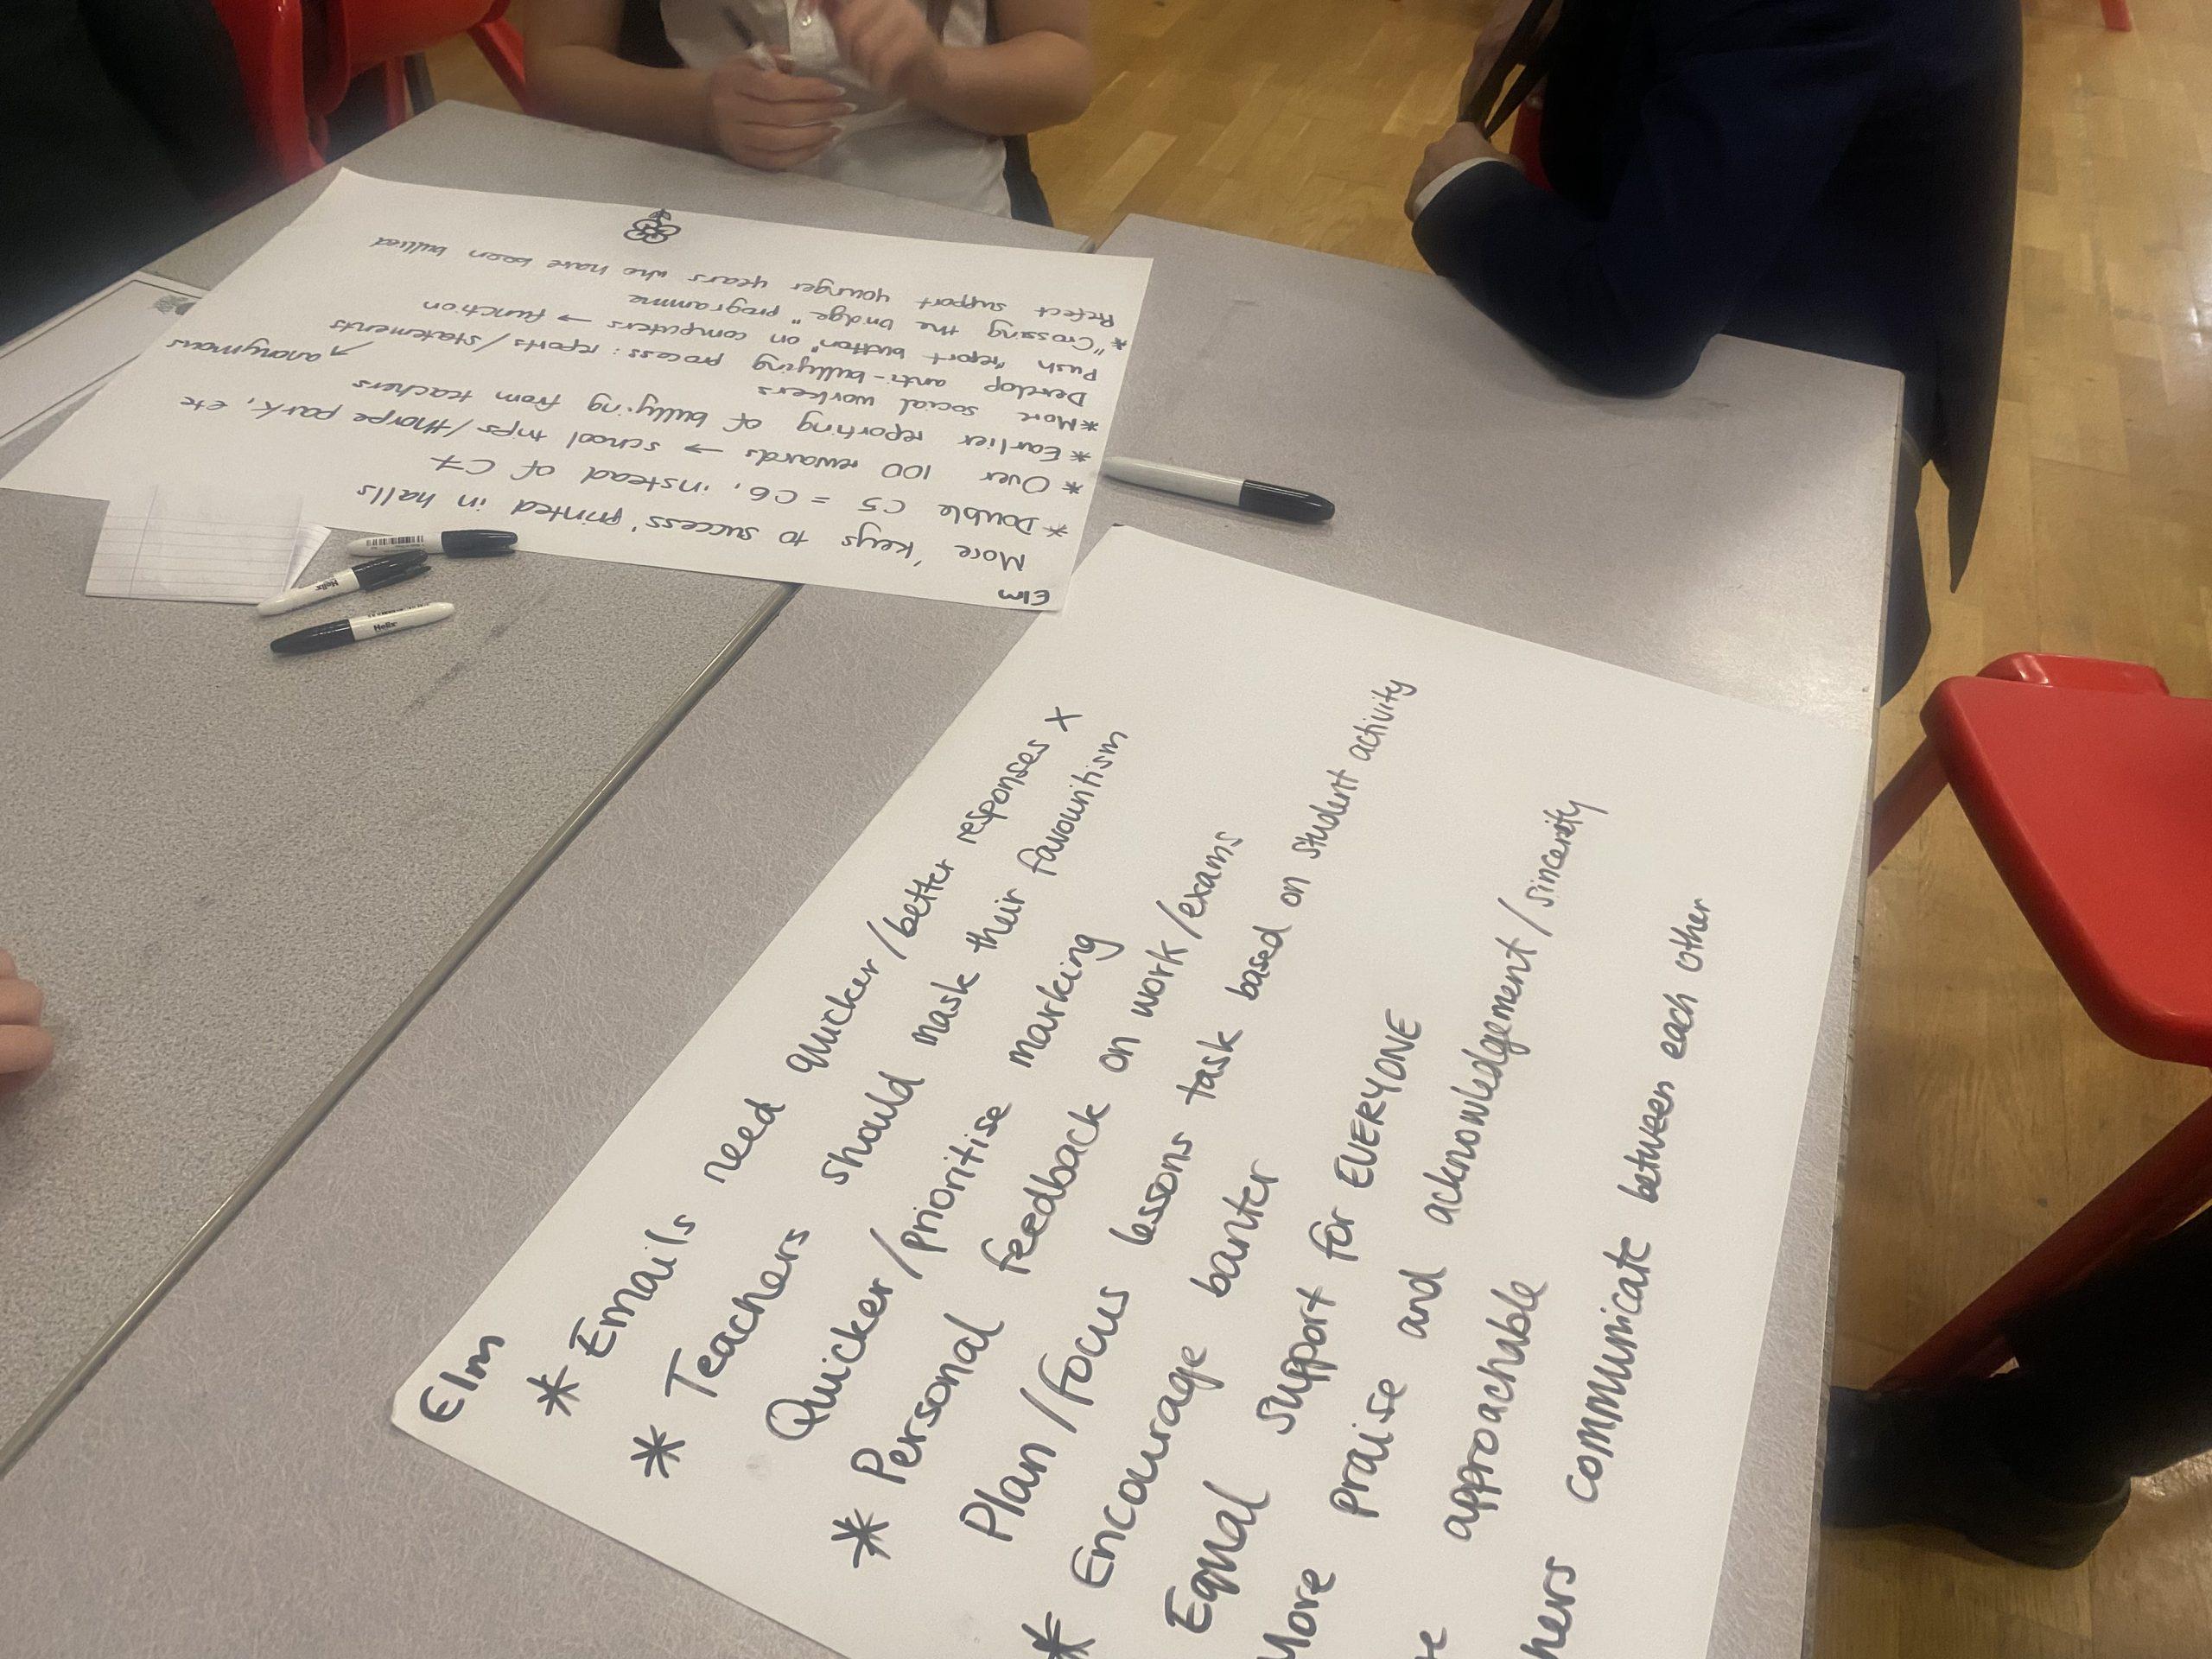 Elm
* Emails need quicker/better responses X
* Teachers should mask their favouritism
Quicker/prioritise marking
* Personal feedback on work/exams
Plan/Focus lessons task based on student activity
* Encourage banter
Equal support for EVERYONE
More praise and acknowledgement/sincerity
approachable
communicate between each other
Elm
More 'keys to success' printed in halls
* Double C5 = C6, instead of C7
* Over 100 rewards → school trips/thorpe park, etc
* Earlier reporting of bullying from teachers
* More social workers
anonymous
Develop anti-bullying process: reports/statements
Push "report button" on computers → function
* "Crossing the bridge" programme
Prefect support younger years who have been bullied
Helix
Helix